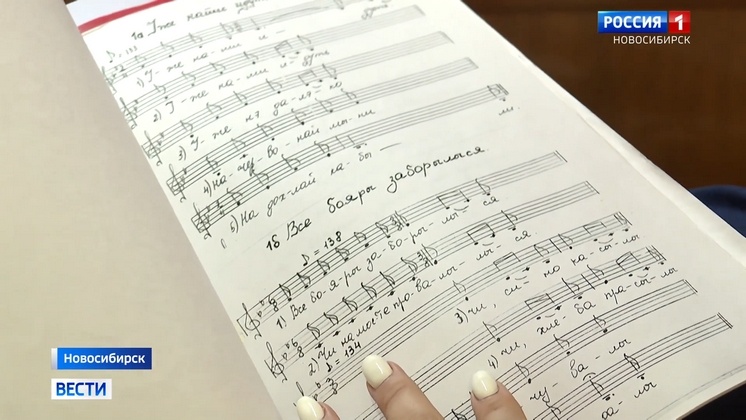 РОССИЯ 1
НОВОСИБИРСК
1а Уже наши идуть
♪ = 133
1) У - же на - ши и -
2) У - же на - ши и - дуть
3) У - же нэ да - лэ - ко
4) На - чу - во - най мы - ни
5) На дох - лай ка - бы
лы
1б Все бояры заборылыся
♪ = 138
1) Все бо - я - ры за - бо - ры - лы - ся
2) Чи на мосте про - ва - лы - лы - ся.
♪ = 134
3) Чи, си - но ка - сы - лы
4) Чи, хле - ба пра - сы - лы
чу - ва - лы
ва - лы
Новосибирск
ВЕСТИ